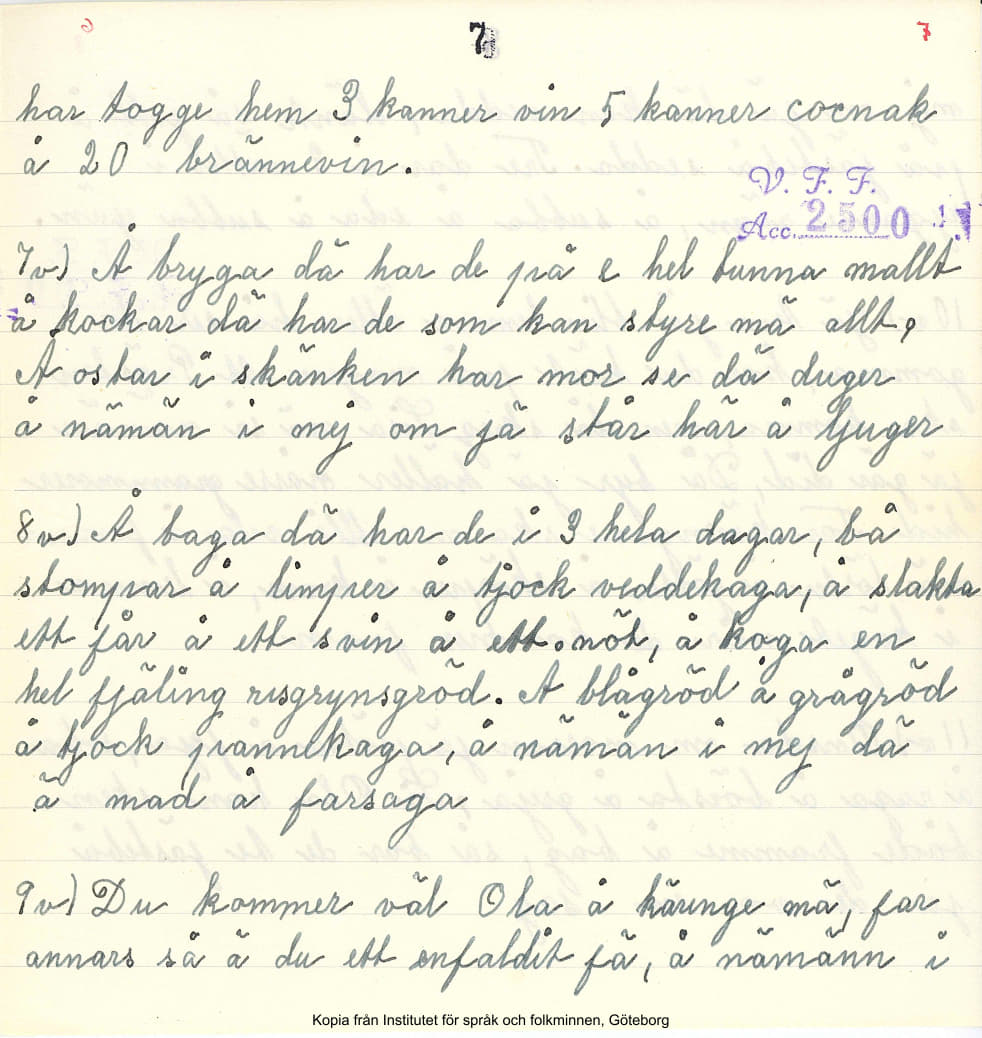 7
7
har togge hem 3 kanner vin 5 kanner cocnak
å 20 brännevin.
V. F. F.
Acc. 2500
7v) Å bryga dä har de på e hel tunna mallt
å kockar dä har de som kan styre mä allt,
Å ostar i skänken har mor se dä duger
å nämän i mej om jä står här å ljuger
8v) Å baga dä har de i 3 hela dagar, bå
stompar å limper å tjock veddekaga, å slakta
ett får å ett svin å ett nöt, å koga en
hel fjäling risgrynsgröd. Å blågröd å grågröd
å tjock pannekaga, å nämän i mej dä
ä mad å farsaga
9v) Du kommer väl Ola å käringe mä, far
annars så ä du ett enfaldit fä, å nämänn i
Kopia från Institutet för språk och folkminnen, Göteborg